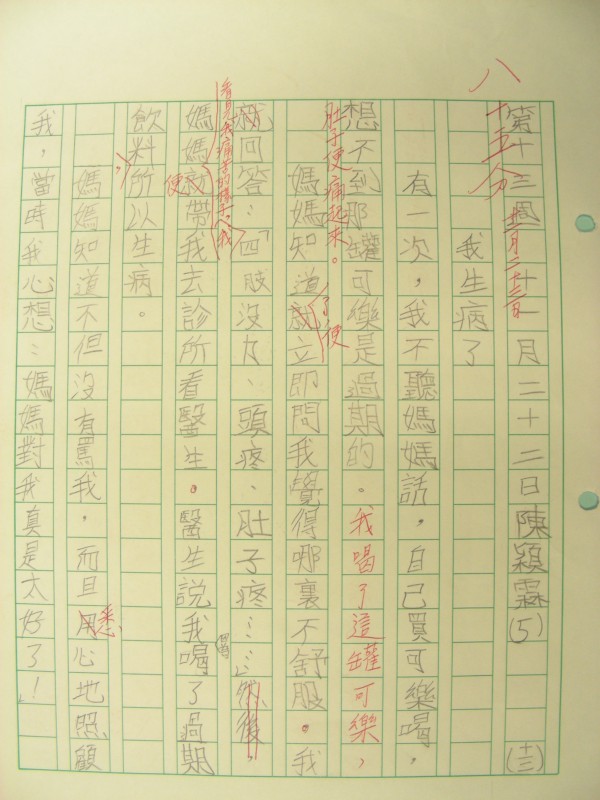 八十五分
十一月二十三日
第十三週 十一月二十二日 陳穎霖(5) (十三)
我生病了
有一次,我不聽媽媽話,自己買可樂喝,
想不到那罐可樂是過期的。我喝了這罐可樂,
肚子便痛起來。
媽媽知道就立即問我覺得哪裏不舒服。我
了,便
就回答:「四肢沒力、頭疼、肚子疼……」然後,
看見我痛苦的樣子,我
媽媽就帶我去診所看醫生。醫生說我喝了過期
便
飲料所以生病。
,
媽媽知道不但沒有罵我,而且用心地照顧
悉
我,當時我心想:媽媽對我真是太好了!」